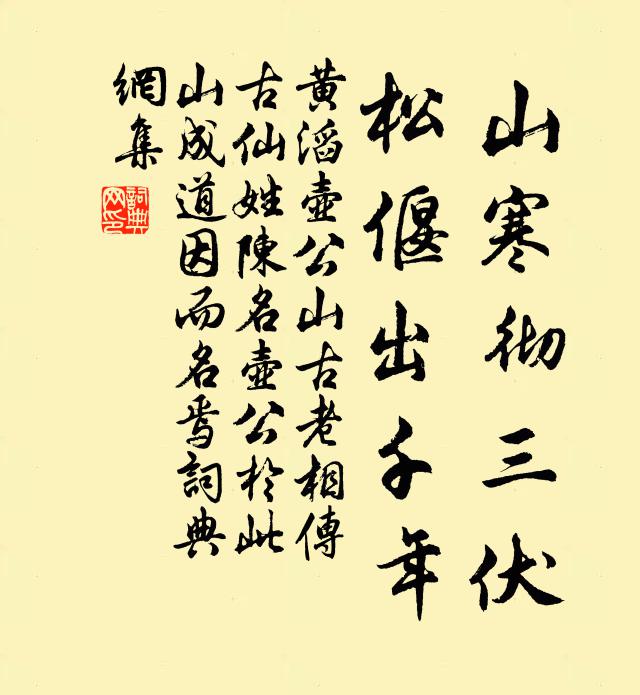 山寒彻三伏
松偃出千年
黄滔壺公山古老相傳
古仙姓陳名壺公於此
山成道因而名焉詞典
網集
詞典
网印